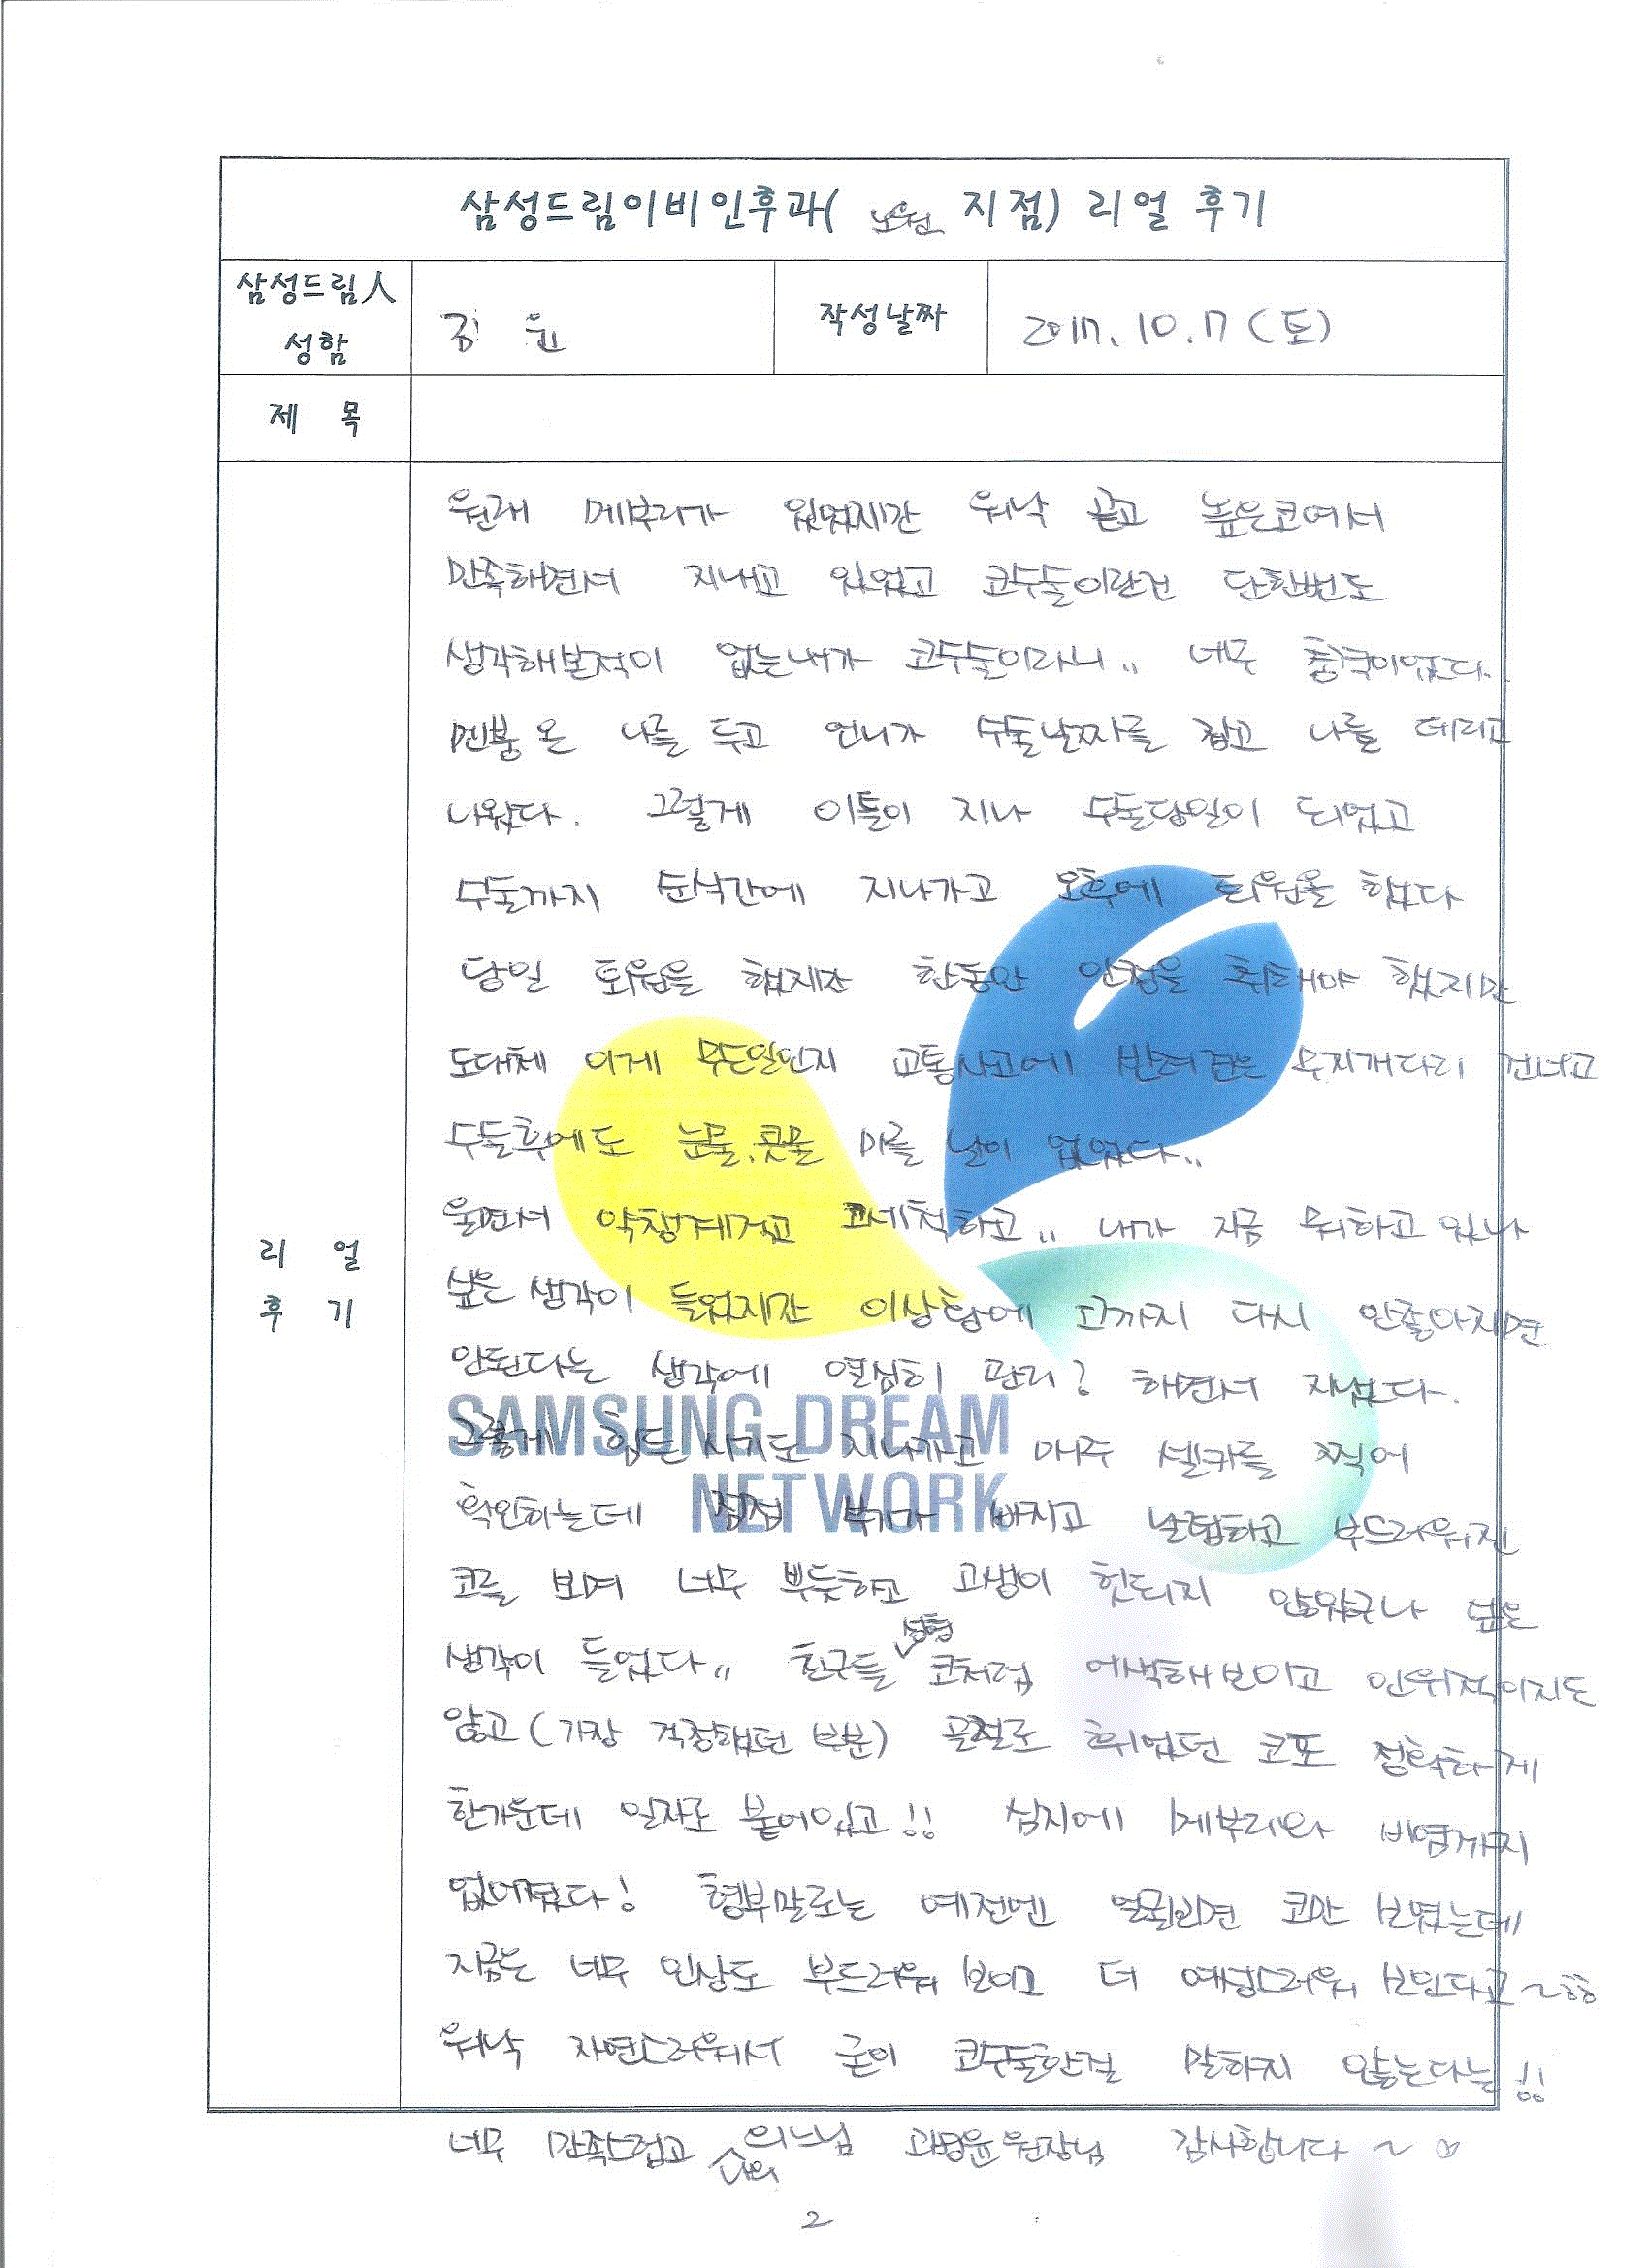 삼성드림이비인후과( 노원 지점) 리얼 후기
삼성드림人
성함
김 윤
작성날짜
2017. 10. 7 (토)
제 목
리 얼
후 기
원래 메부리가 있었지만 워낙 곧고 높은코여서
만족해면서 지내고 있었고 코수술이란건 단한번도
생각해본적이 없는내가 코수술이라니.. 너무 충격이었다.
멘붕 온 나를 두고 언니가 수술날짜를 잡고 나를 데리고
나왔다. 그렇게 이틀이 지나 수술당일이 되었고
수술까지 순식간에 지나가고 오후에 퇴원을 했다
당일 퇴원을 했지만 한동안 안정을 취해야 했지만
도대체 이게 무슨일인지 교통사고에 반려견은 무지개다리 건너고
수술후에도 눈물.콧물 마를 날이 없었다..
울면서 약챙겨먹고 코세척하고.. 내가 지금 뭐하고 있나
싶은 생각이 들었지만 이상황에 코까지 다시 안좋아지면
안된다는 생각에 열심히 관리? 해면서 지냈다.
그렇게 힘든 시기도 지나가고 매주 셀카를 찍어
확인하는데 점점 붓기가 빠지고 날렵하고 부드러워진
코를 보며 너무 뿌듯하고 고생이 헛되지 않았구나 싶은
생각이 들었다.. 친구들 성형 코처럼 어색해보이고 인위적이지도
않고 (가장 걱정했던 부분) 골절로 휘었던 코도 정확하게
한가운데 일자로 붙어있고!! 심지어 메부리와 비염까지
없어졌다! 형부말로는 예전엔 얼굴보면 코만 보였는데
지금은 너무 인상도 부드러워 보이고 더 여성스러워 보인다고~ㅎㅎ
워낙 자연스러워서 굳이 코수술한걸 말하지 않는다는!!
너무 만족스럽고 나의 의느님 곽명윤 원장님 감사합니다~♡
SAMSUNG DREAM
NETWORK
2